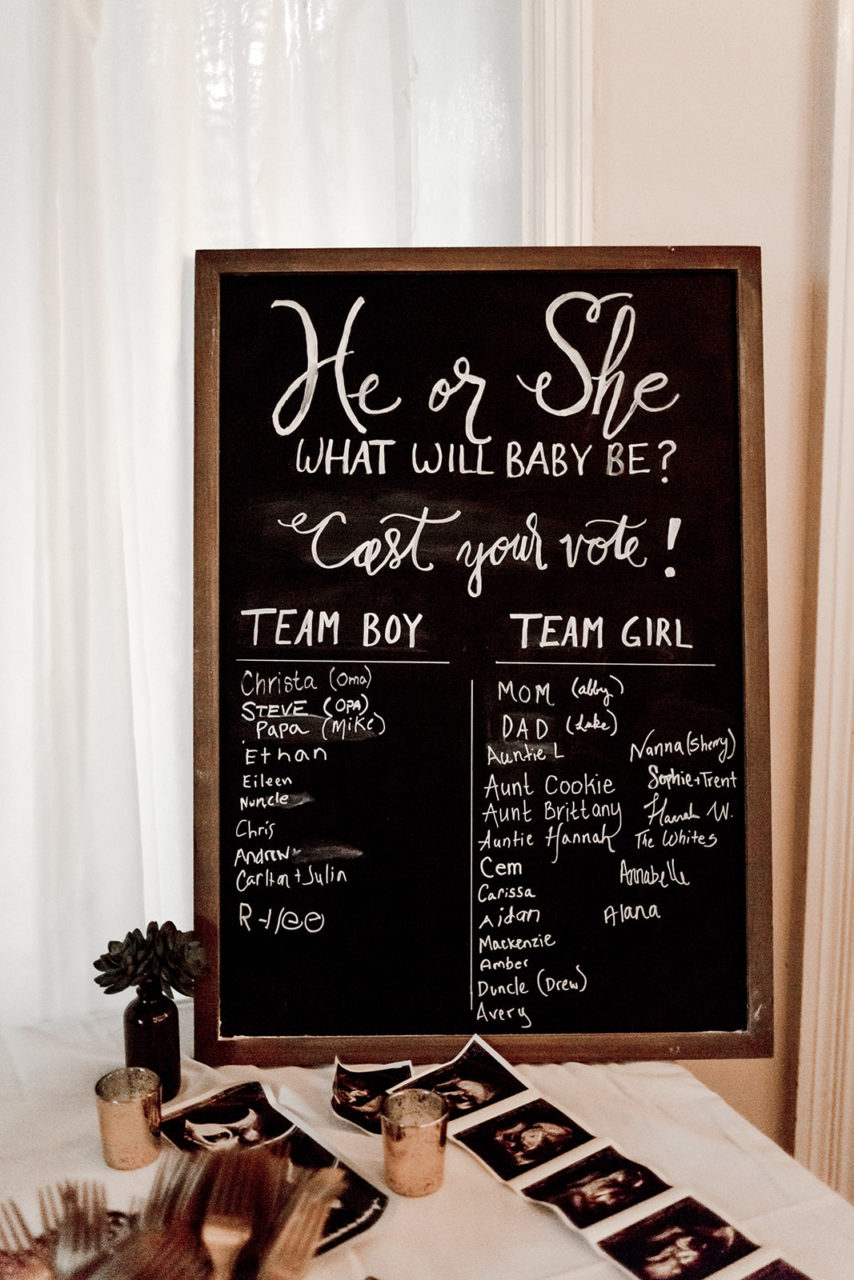 He or She
WHAT WILL BABY BE?
Cast your vote!
TEAM BOY
Christa (Oma)
STEVE (OPA)
Papa (Mike)
Ethan
Eileen
Nuncle
Chris
Andrew
Carlton + Julin
TEAM GIRL
MOM (abby)
DAD (Luke)
Auntie L
Aunt Cookie
Aunt Brittany
Auntie Hannah
Cem
Carissa
Aidan
Mackenzie
Amber
Duncle (Drew)
Avery
Nanna (Sherry)
Sophie + Trent
Hannah W.
The Whites
Annabelle
Alana